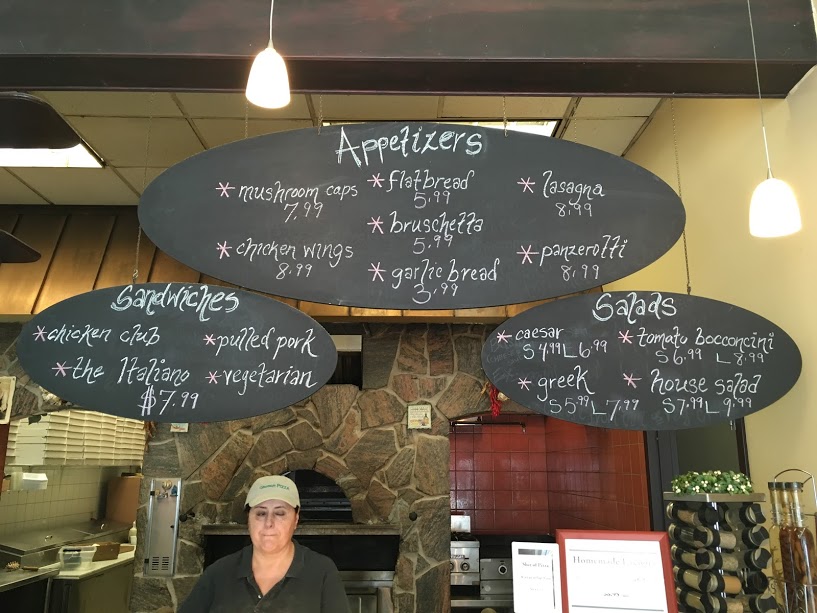 Appetizers
* mushroom caps
7.99
* chicken wings
8.99
* flatbread
5.99
* bruschetta
5.99
* garlic bread
3.99
* lasagna
8.99
* panzerotti
8.99
Sandwiches
* chicken club
* the Italiano
* pulled pork
* vegetarian
$7.99
Salads
* caesar
S 4.99 L 6.99
* greek
S 5.99 L 7.99
* tomato bocconcini
S 6.99 L 8.99
* house salad
S 7.99 L 9.99